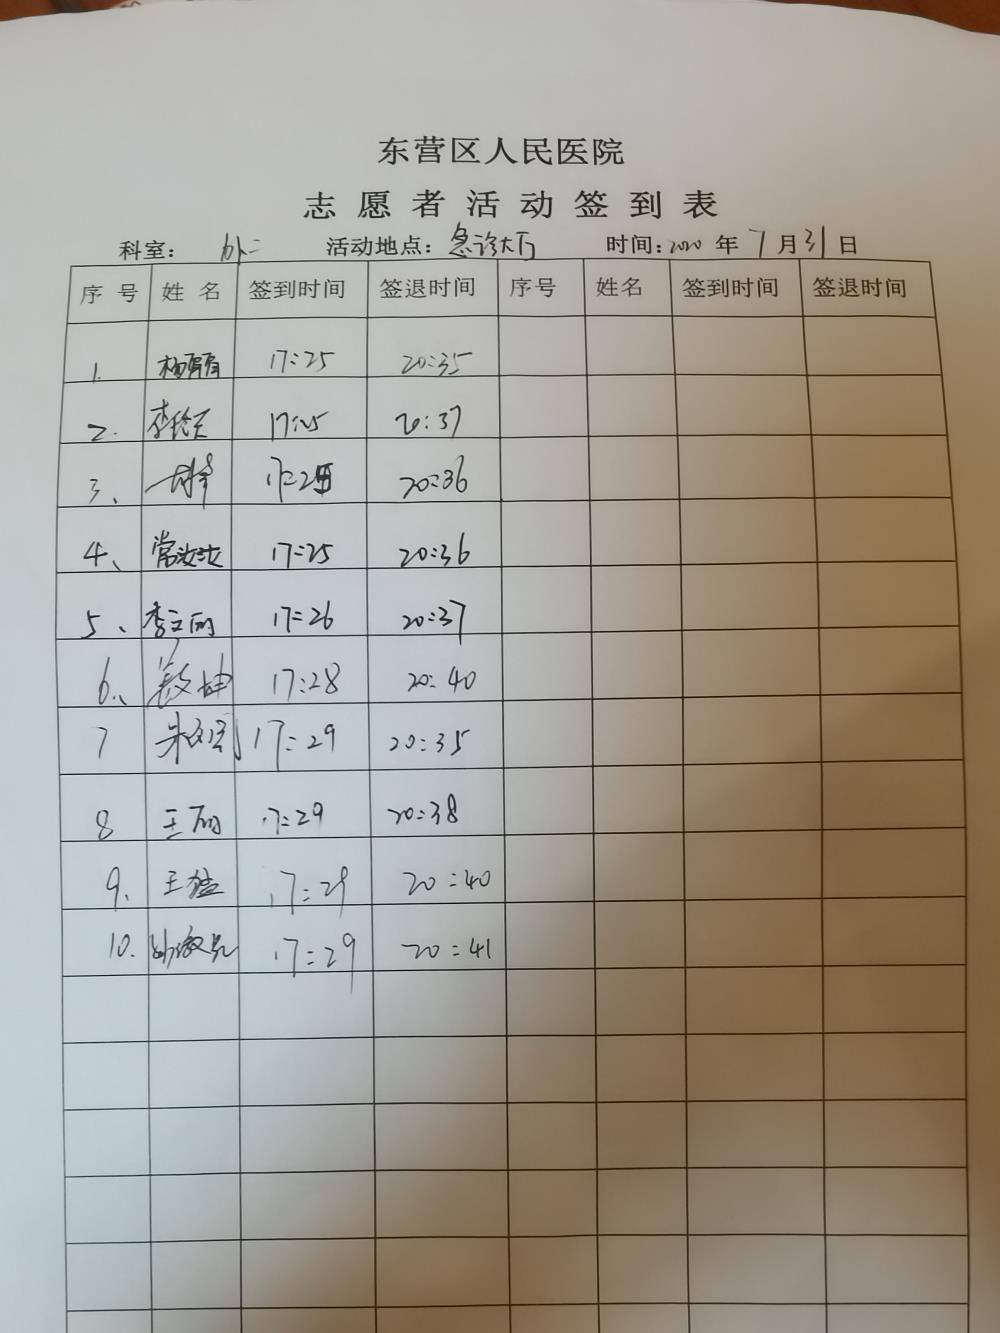 东营区人民医院
志愿者活动签到表
科室: 外二 活动地点: 急诊大厅 时间: 2020 年 7 月 31 日
序号 姓名 签到时间 签退时间 序号 姓名 签到时间 签退时间
1. 杨丽丽 17:25 20:35
2. 17:25 20:37
3、 17:25 20:36
4、 17:25 20:36
5、 李立丽 17:26 20:37
6、 17:28 20:40
7 17:29 20:35
8 王丽 17:29 20:38
9. 王猛 17:29 20:40
10. 17:29 20:41